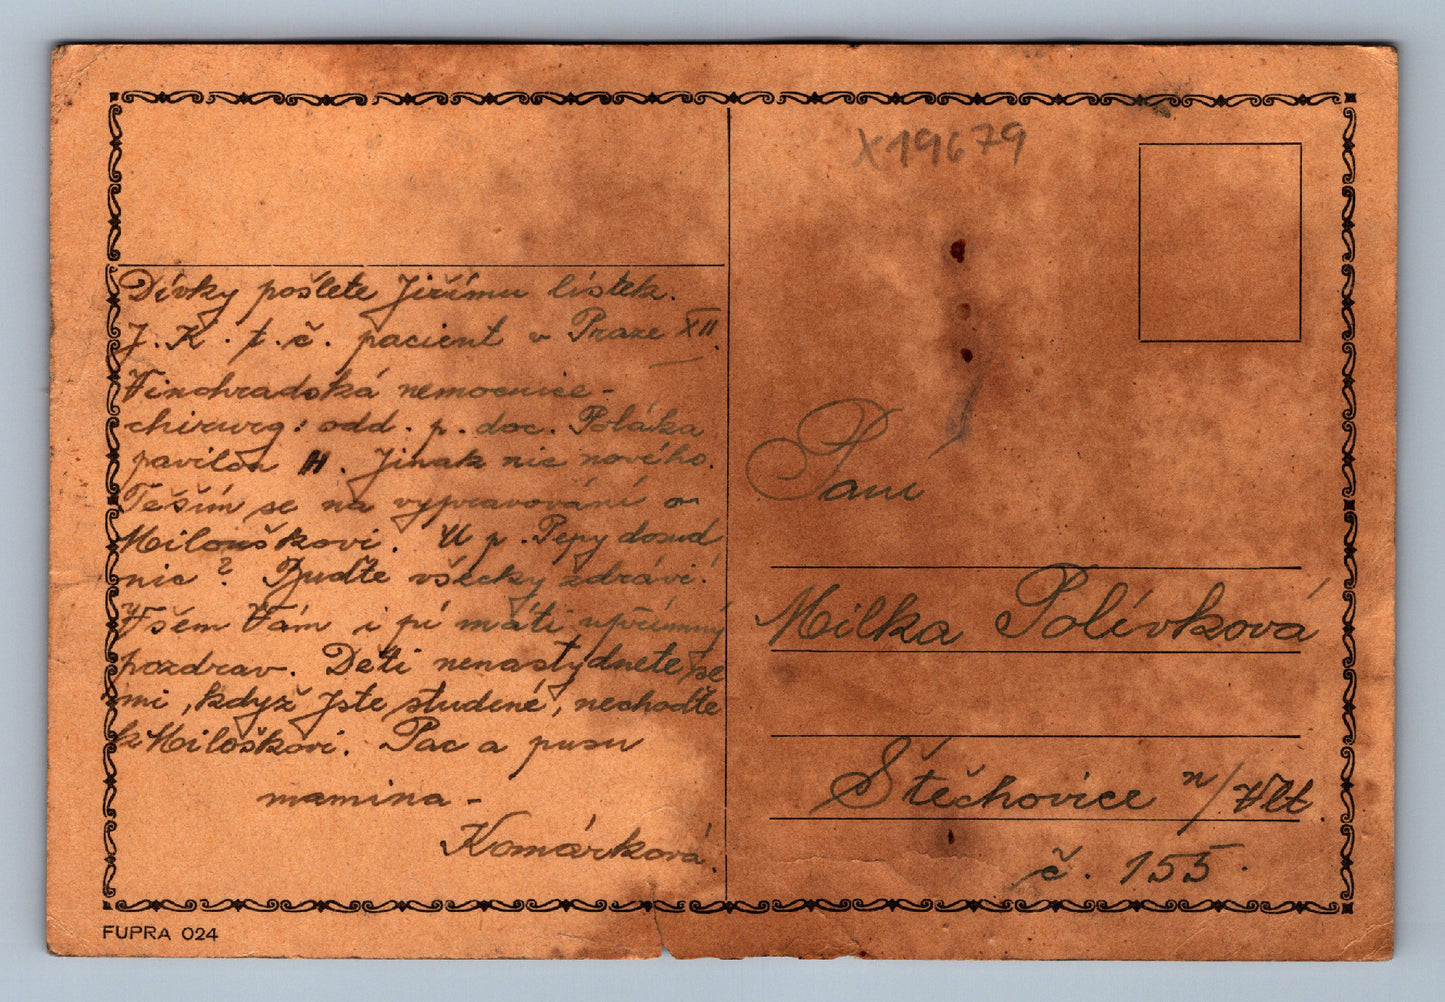 X19679
Dívky pošlete Jiřímu lístek.
J. K. t. č. pacient v Praze XII.
Vinohradská nemocnice -
chirurg: odd. p. doc. Poláka
pavilon H. Jinak nic nového.
Těším se na vypravování o
Milouškovi. U p. Pepy dosud
nic? Buďte všecky zdrávi!
Všem Vám i pí máti upřímný
pozdrav. Děti nenastydnete se
mi, když jste studené, nechoďte
k Miloškovi. Pac a pusu
mamina -
Komárková.
Paní
Milka Polívková
Štěchovice n/Vlt.
č. 155.
FUPRA 024